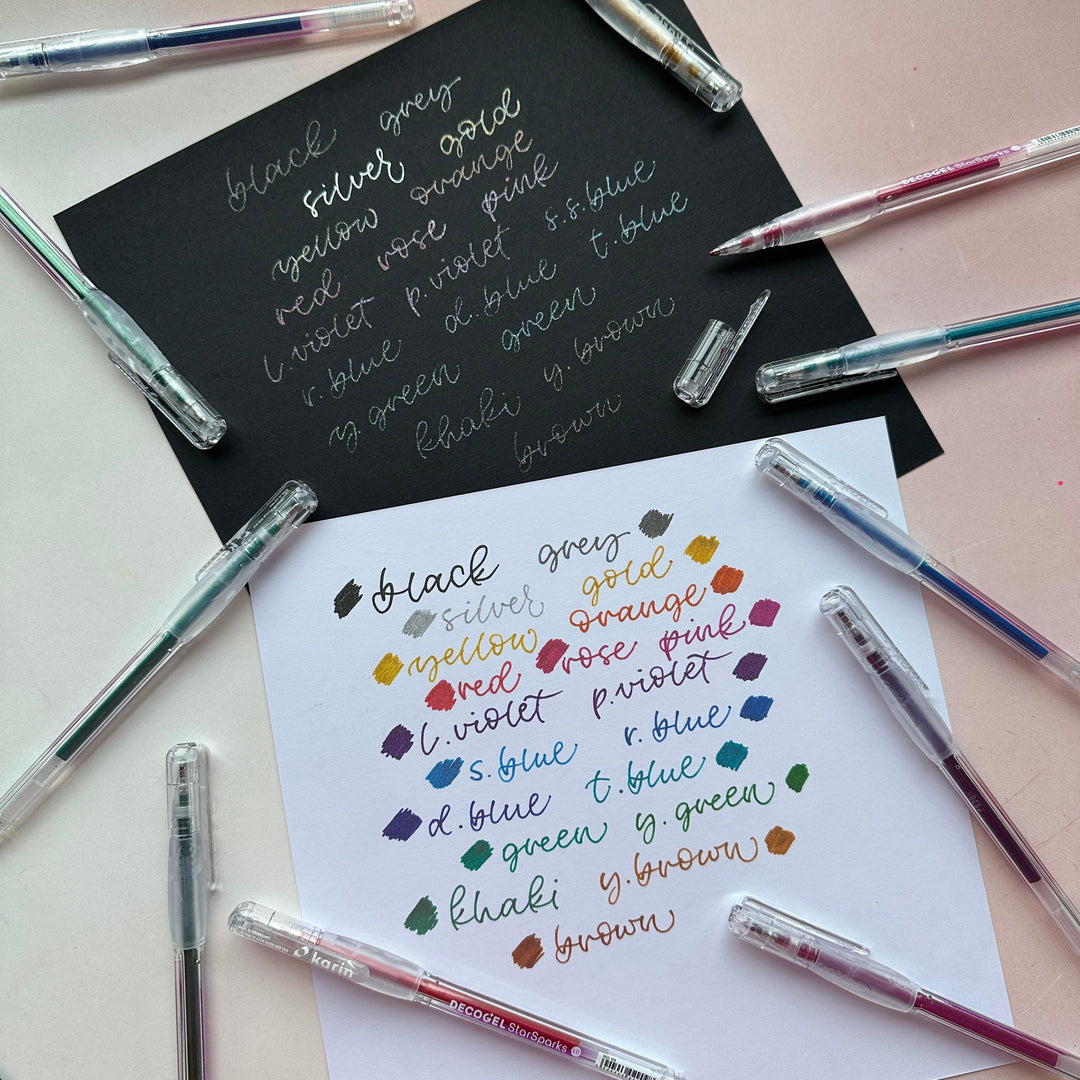 black grey
silver gold
yellow orange
red rose pink
l.violet p.violet s.s.blue
r.blue d.blue t.blue
y.green green
khaki y.brown
brown
DECOGEL StarSparks
black grey
silver gold
yellow orange
red rose pink
l.violet p.violet
s.blue r.blue
d.blue t.blue
green y.green
khaki y.brown
brown
karin
DECOGEL StarSparks 1.0